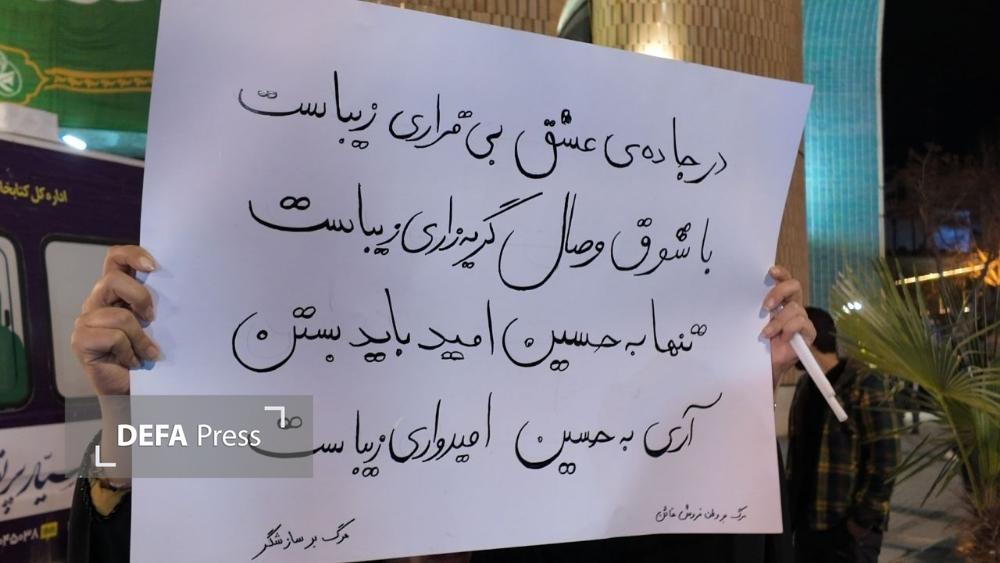 اداره کل کتابخا
در جاده‌ی عشق بی قراری زیباست
با شوق وصال گریه زاری زیباست
تنها به حسین امید باید بستن
آری به حسین امیدواری زیباست
مرگ بر وطن فروش خائن
مرگ بر سازشگر
DEFA Press
سیار